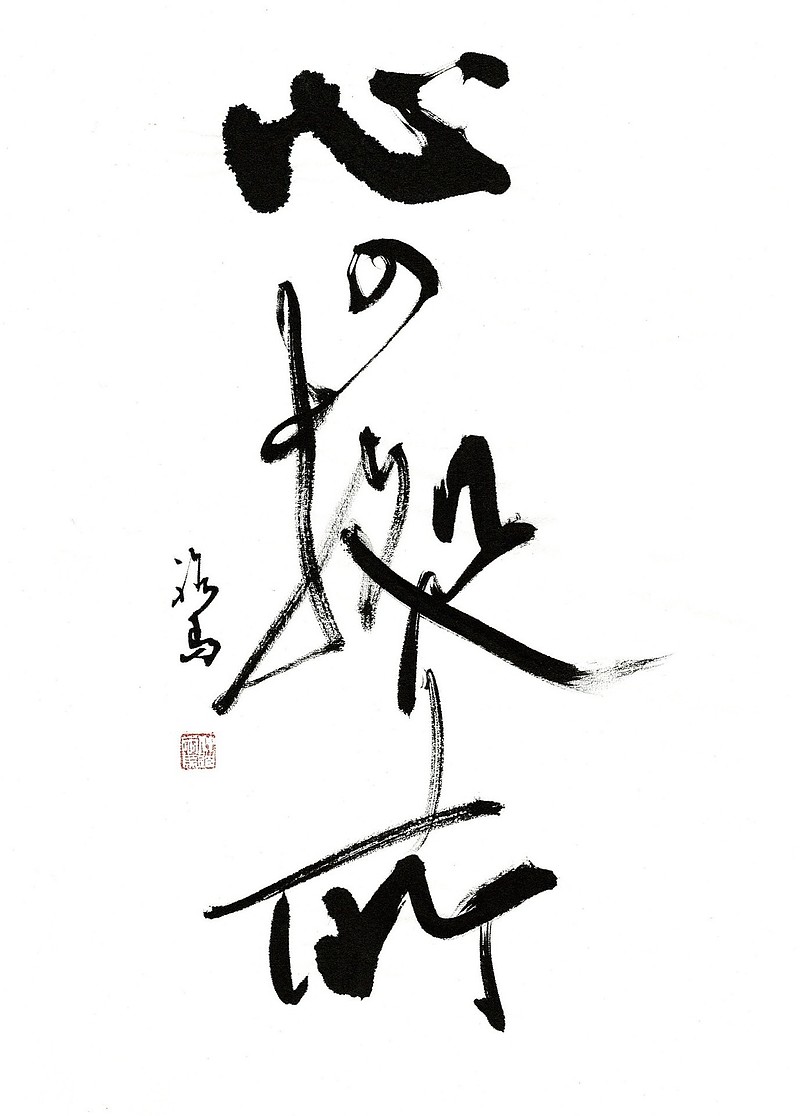 心の拠所